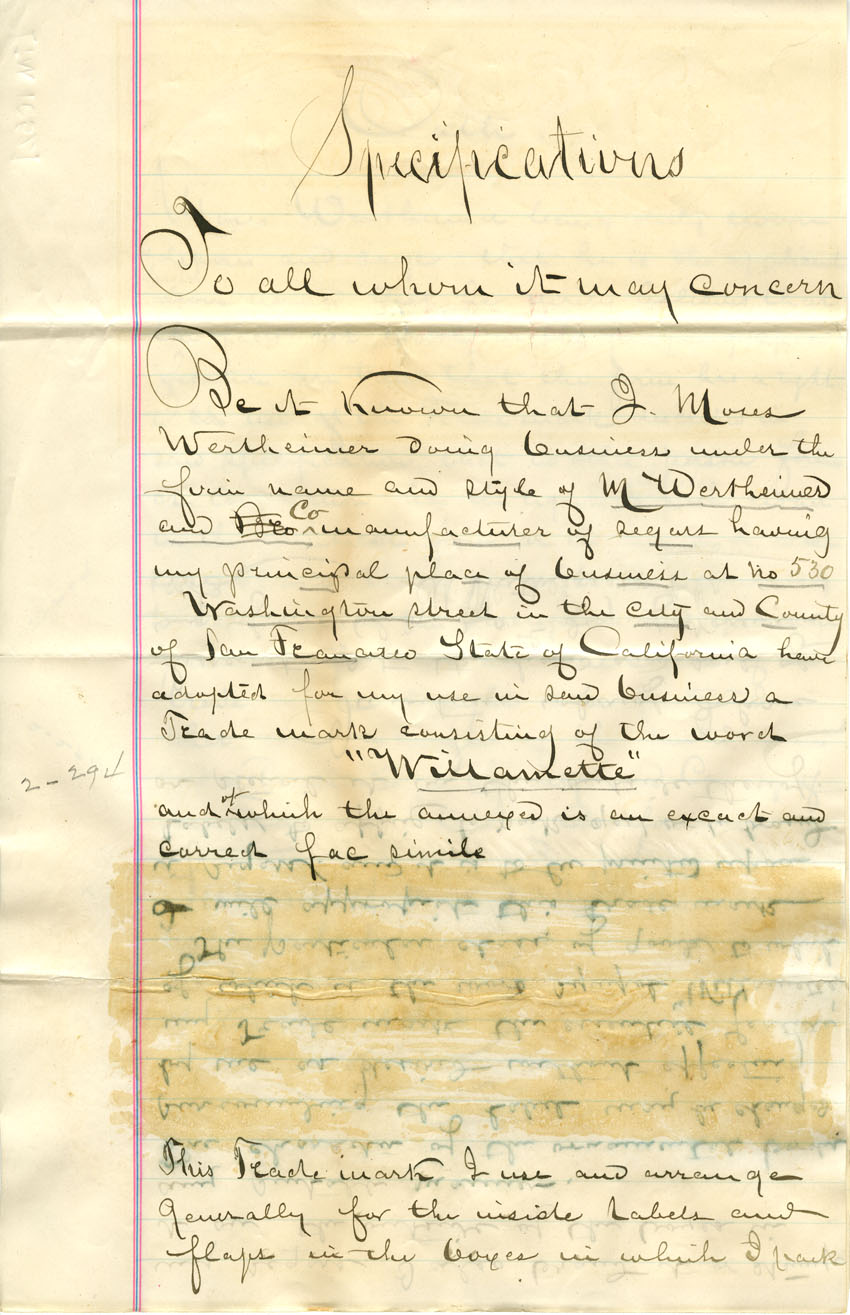 Specifications
To all whom it may concern
Be it Known that I. Moses
Wertheimer doing business under the
firm name and style of M Wertheimer
and Co manufacturer of segars having
my principal place of business at No 530
Washington street in the city and County
of San Francisco State of California have
adopted for my use in said business a
Trade mark consisting of the word
"Willamette"
2-294
and of which the annexed is an exact and
correct fac simile
This Trade mark I use and arrange
generally for the inside labels and
flaps in the boxes in which I pack